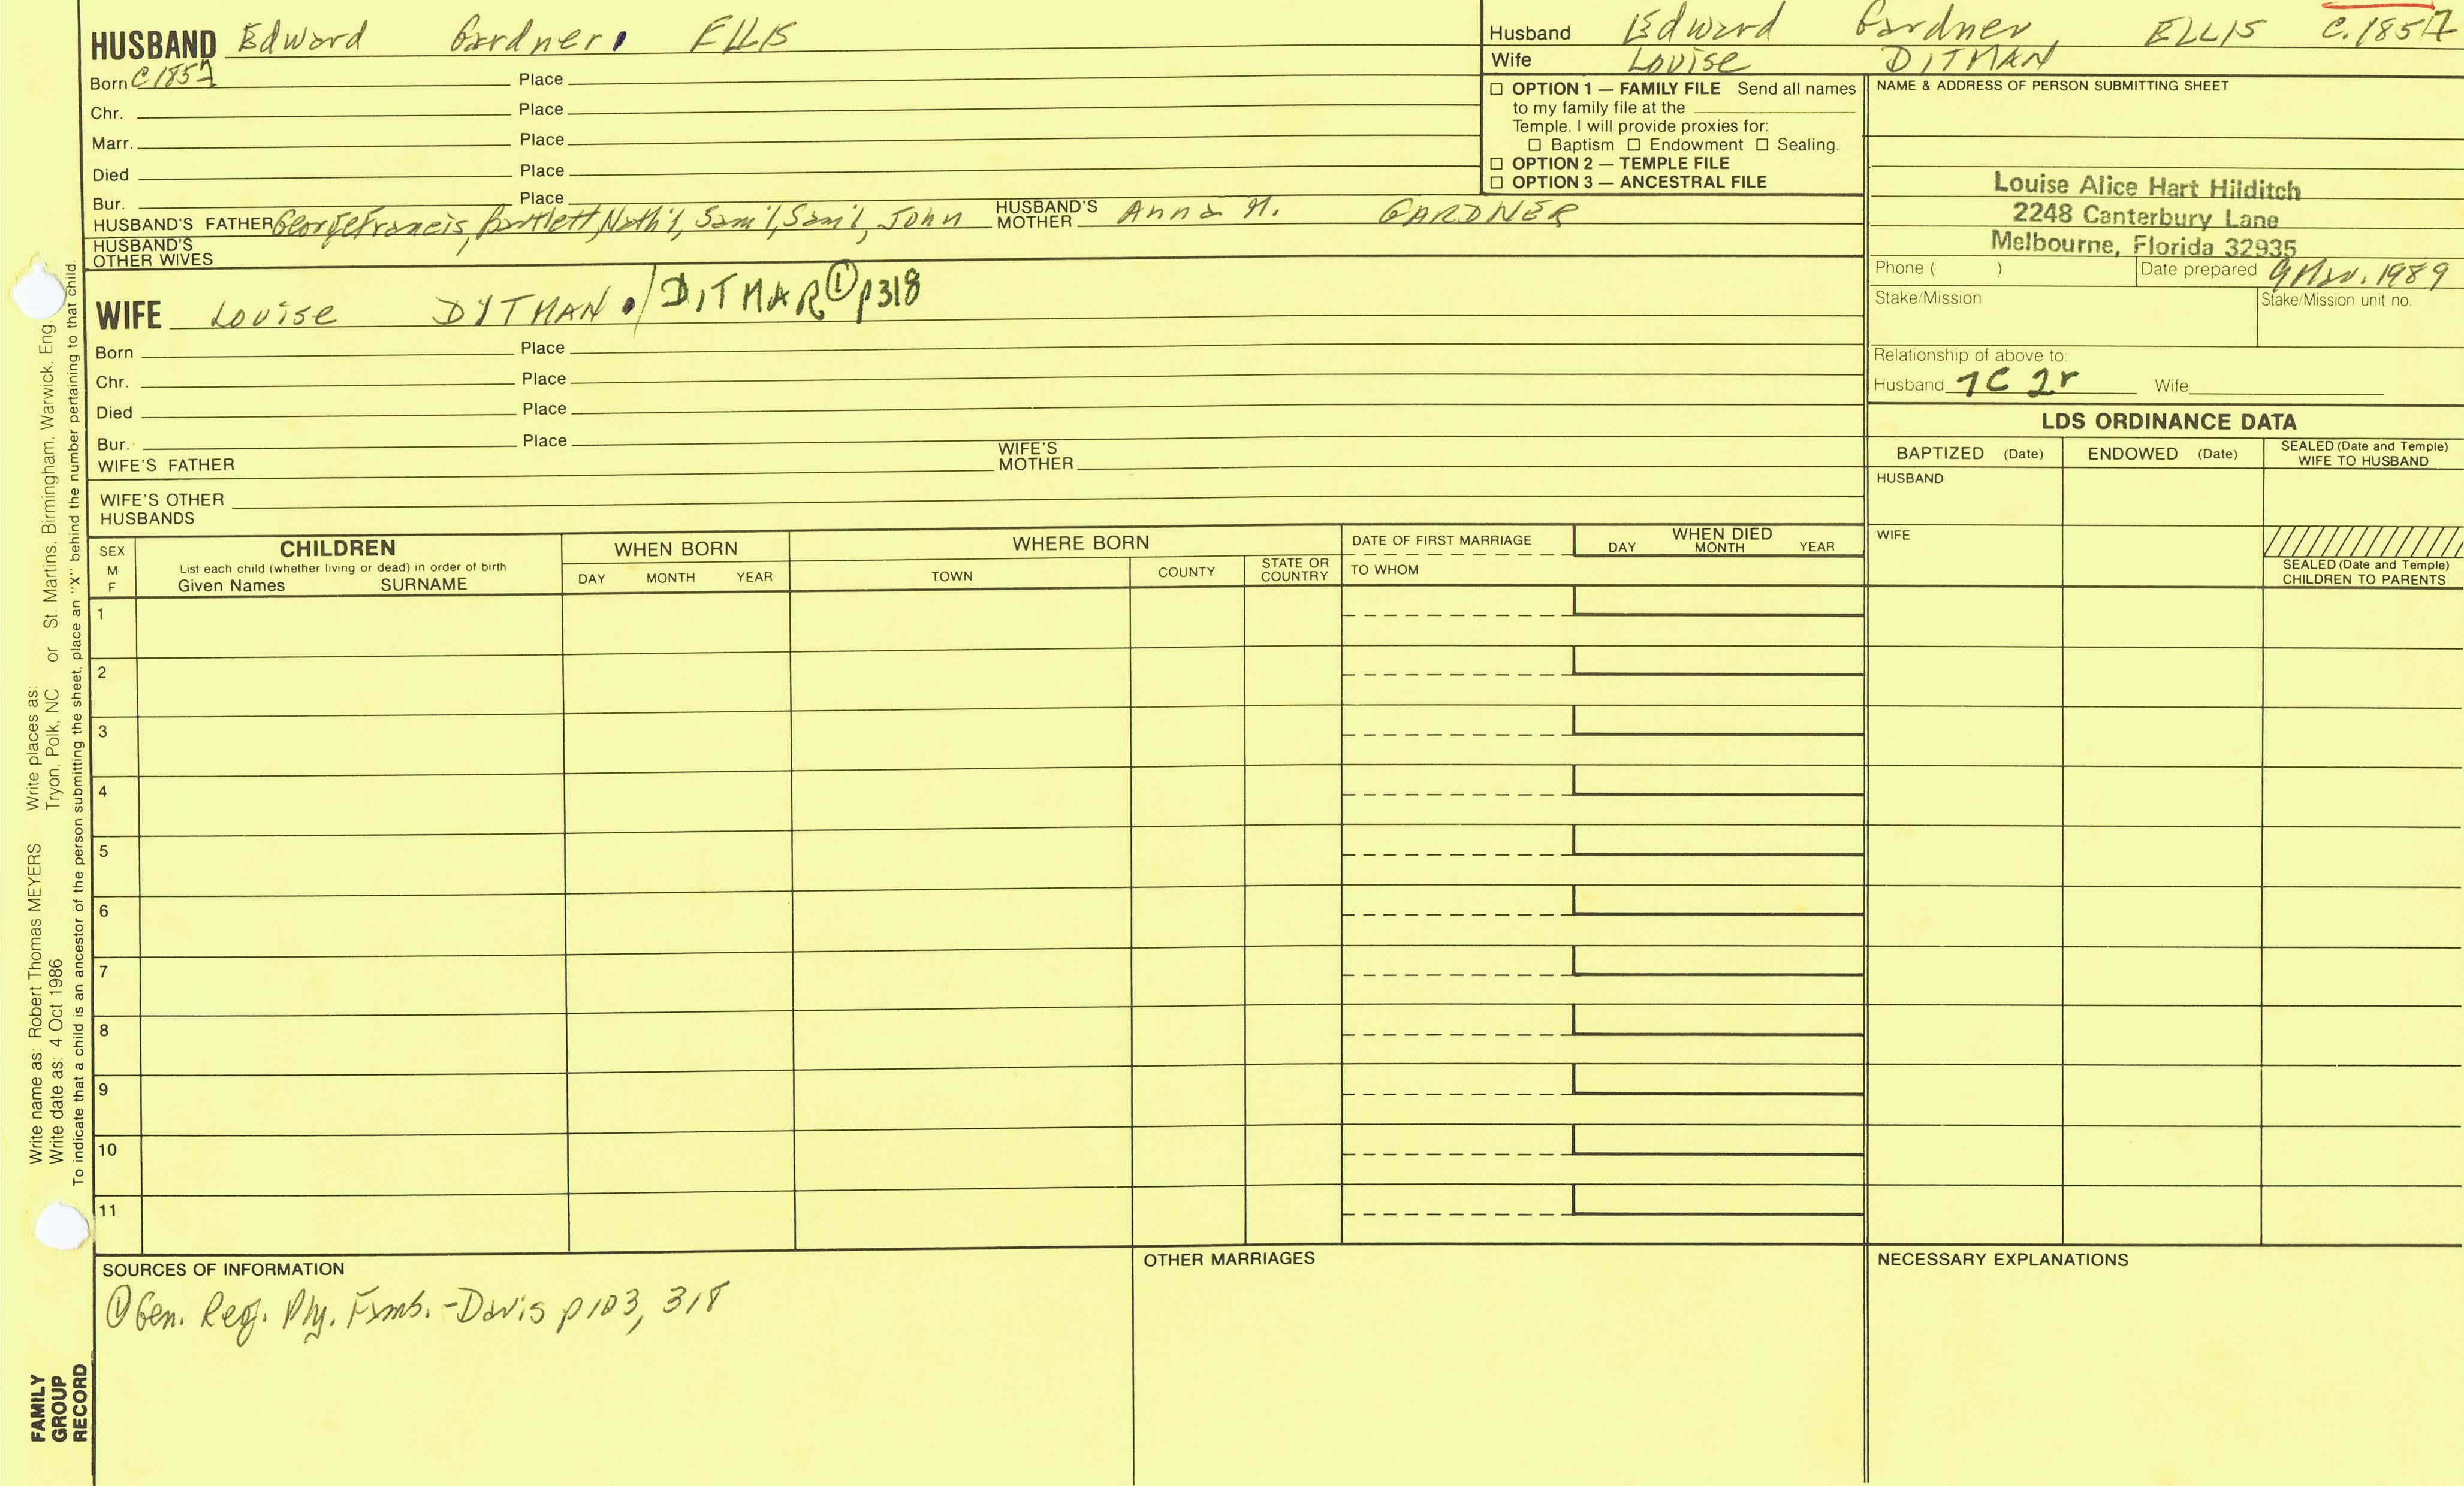 HUSBAND Edward Gardner, ELLIS
Born c1857 Place
Chr. Place
Marr. Place
Died Place
Bur. Place
HUSBAND'S FATHER George Francis, Bartlett, Nath'l, Sam'l, Sam'l, John HUSBAND'S MOTHER Anna M. GARDNER
HUSBAND'S OTHER WIVES
Husband Edward Gardner, ELLIS c.1857
Wife Louise DITMAN
☐ OPTION 1 — FAMILY FILE Send all names
to my family file at the
Temple. I will provide proxies for:
☐ Baptism ☐ Endowment ☐ Sealing.
☐ OPTION 2 — TEMPLE FILE
☐ OPTION 3 — ANCESTRAL FILE
NAME & ADDRESS OF PERSON SUBMITTING SHEET
Louise Alice Hart Hilditch
2248 Canterbury Lane
Melbourne, Florida 32935
Phone ( ) Date prepared 9 Nov. 1989
Stake/Mission Stake/Mission unit no.
Relationship of above to:
Husband 7C 2r Wife
WIFE Louise DITMAN. / DITMAR ① p318
Born Place
Chr. Place
Died Place
Bur. Place
WIFE'S FATHER WIFE'S MOTHER
WIFE'S OTHER HUSBANDS
LDS ORDINANCE DATA
BAPTIZED (Date) ENDOWED (Date) SEALED (Date and Temple) WIFE TO HUSBAND
HUSBAND
WIFE
SEALED (Date and Temple) CHILDREN TO PARENTS
SEX M F
CHILDREN
List each child (whether living or dead) in order of birth
Given Names SURNAME
WHEN BORN
DAY MONTH YEAR
WHERE BORN
TOWN COUNTY STATE OR COUNTRY
DATE OF FIRST MARRIAGE
TO WHOM
WHEN DIED
DAY MONTH YEAR
1
2
3
4
5
6
7
8
9
10
11
SOURCES OF INFORMATION
① Gen. Reg. Ply. Fams. - Davis p103, 318
OTHER MARRIAGES
NECESSARY EXPLANATIONS
Write name as: Robert Thomas MEYERS Write places as:
Write date as: 4 Oct 1986 Tryon, Polk, NC or St. Martins, Birmingham, Warwick, Eng.
To indicate that a child is an ancestor of the person submitting the sheet, place an "X" behind the number pertaining to that child.
FAMILY
GROUP
RECORD